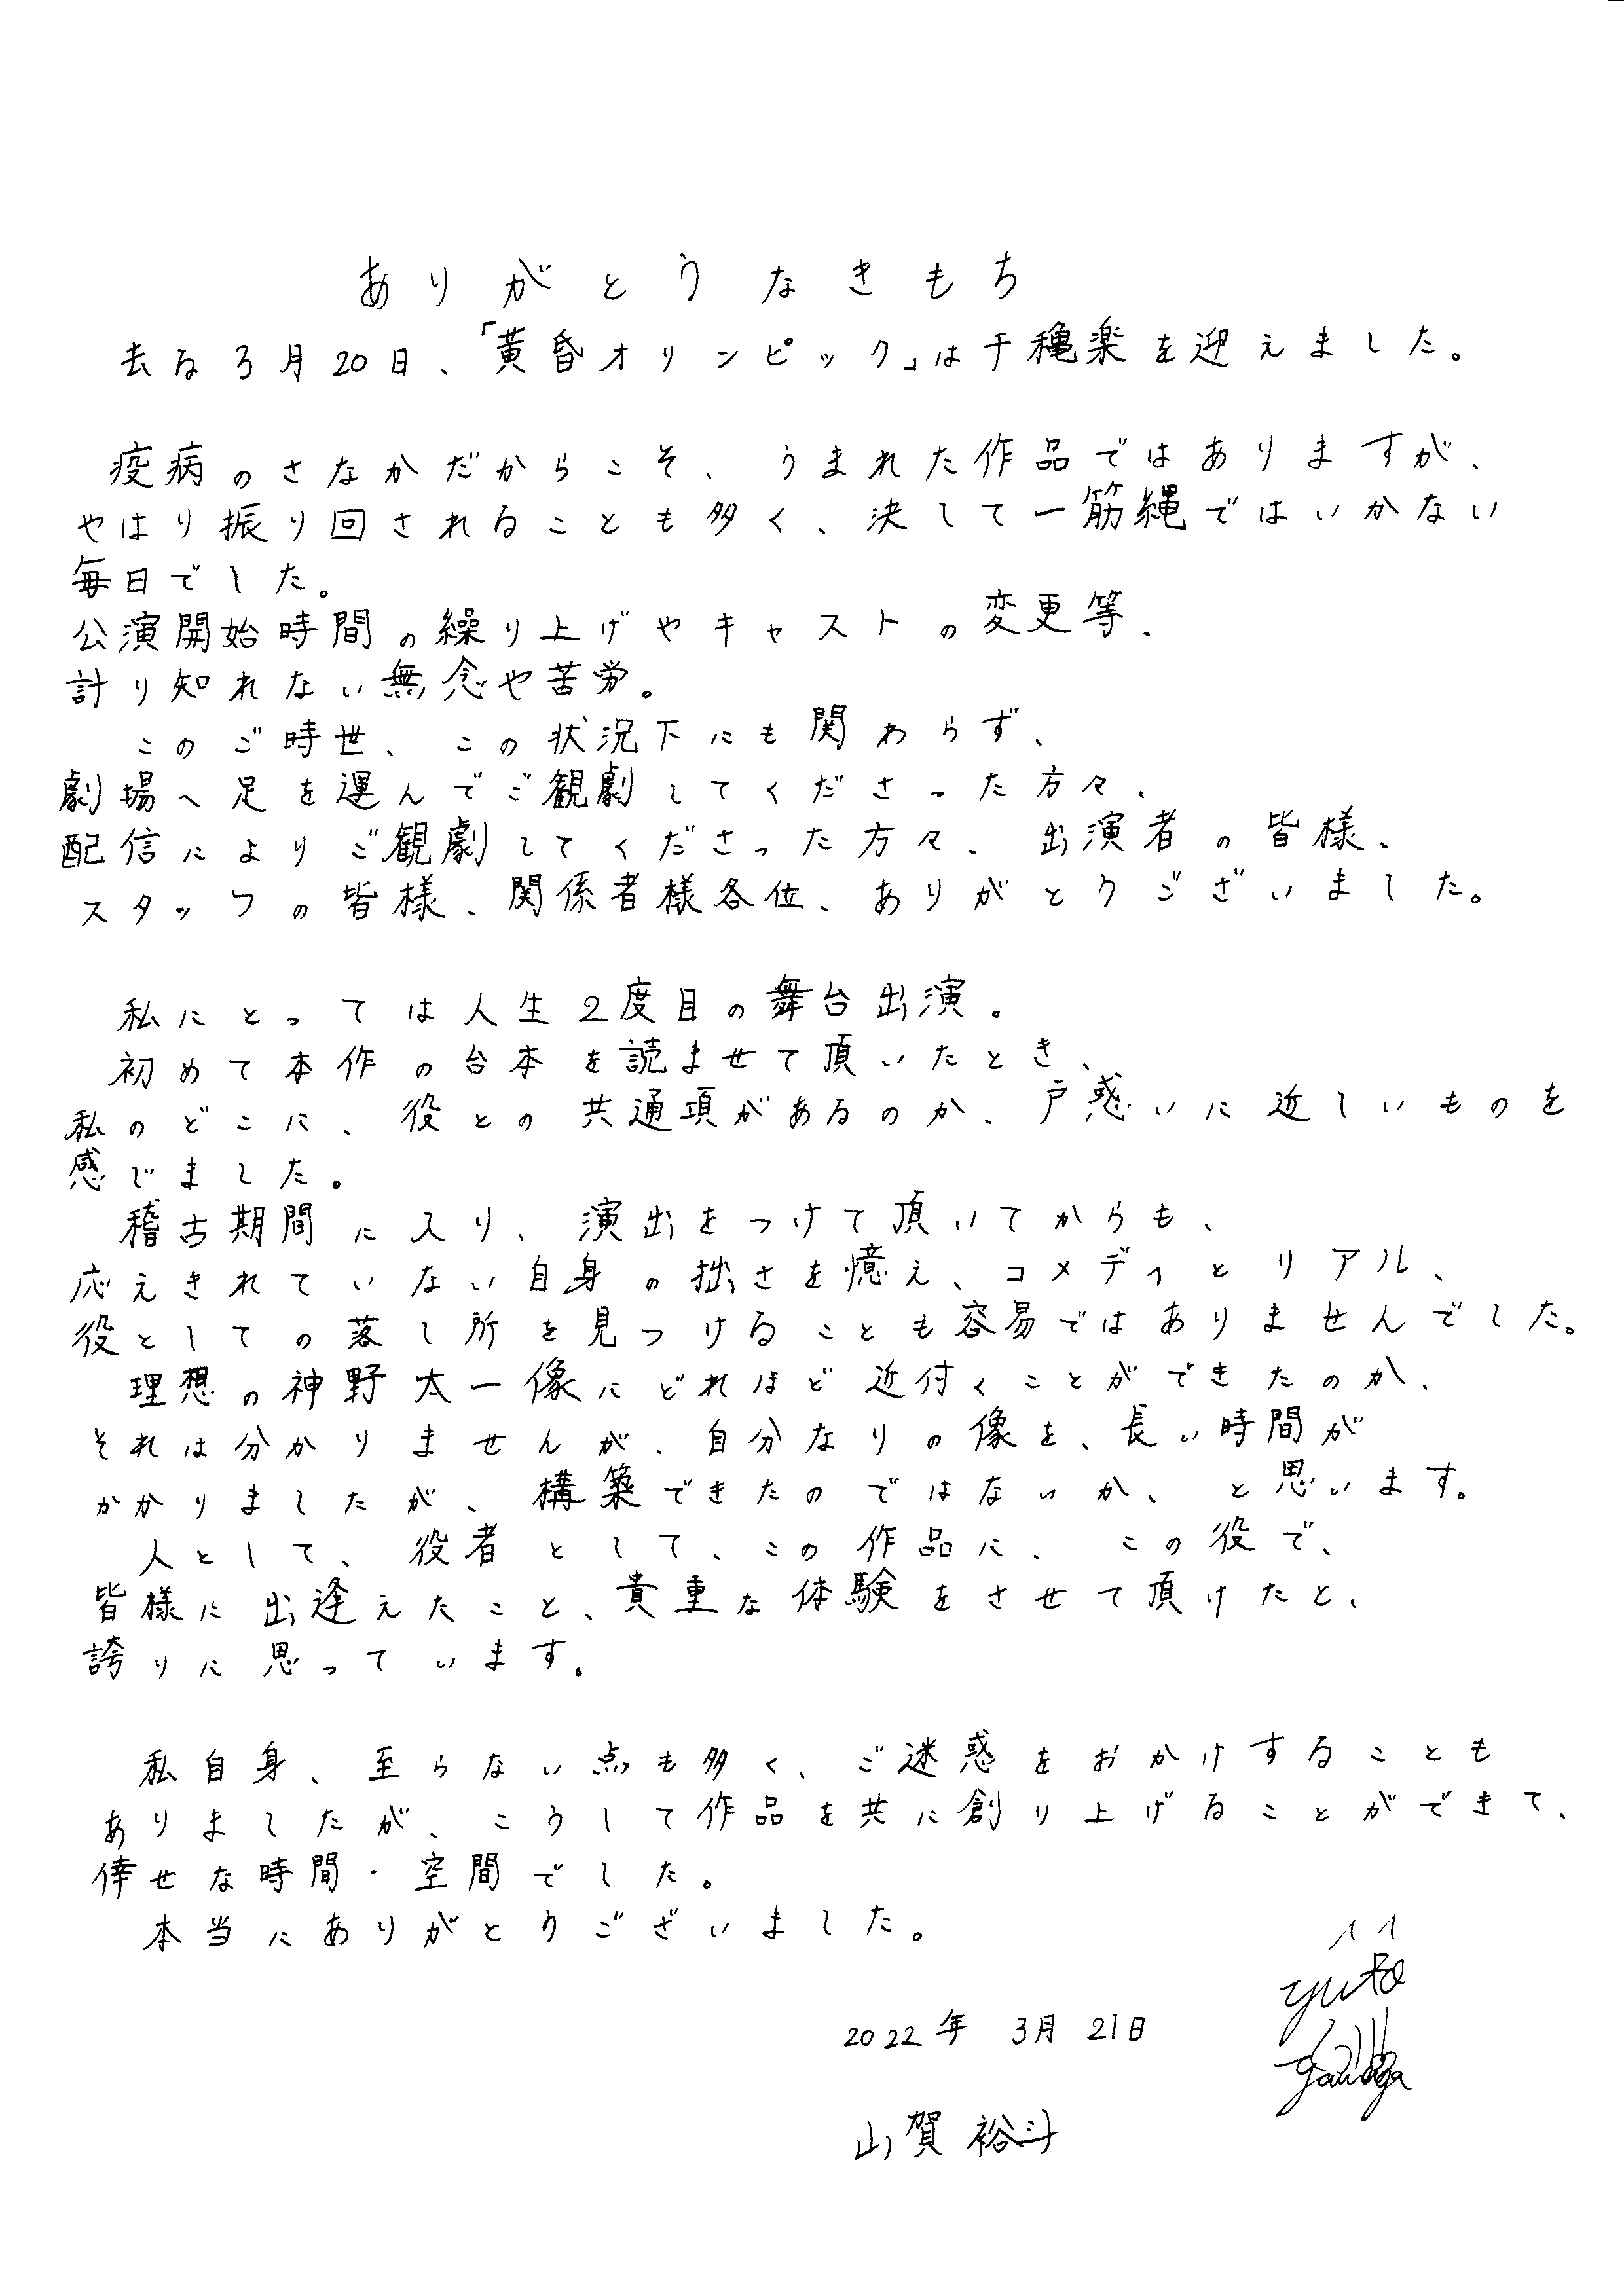 ありがとうなきもち
去る3月20日、「黄昏オリンピック」は千穐楽を迎えました。
疫病のさなかだからこそ、うまれた作品ではありますが、
やはり振り回されることも多く、決して一筋縄ではいかない
毎日でした。
公演開始時間の繰り上げやキャストの変更等、
計り知れない無念や苦労。
このご時世、この状況下にも関わらず、
劇場へ足を運んでご観劇してくださった方々、
配信によりご観劇してくださった方々、出演者の皆様、
スタッフの皆様、関係者様各位、ありがとうございました。
私にとっては人生2度目の舞台出演。
初めて本作の台本を読ませて頂いたとき、
私のどこに、役との共通項があるのか、戸惑いに近しいものを
感じました。
稽古期間に入り、演出をつけて頂いてからも、
応えきれていない自身の拙さを憶え、コメディとリアル、
役としての落し所を見つけることも容易ではありませんでした。
理想の神野太一像にどれほど近付くことができたのか、
それは分かりませんが、自分なりの像を、長い時間が
かかりましたが、構築できたのではないか、と思います。
人として、役者として、この作品に、この役で、
皆様に出逢えたこと、貴重な体験をさせて頂けたと、
誇りに思っています。
私自身、至らない点も多く、ご迷惑をおかけすることも
ありましたが、こうして作品を共に創り上げることができて、
倖せな時間・空間でした。
本当にありがとうございました。
2022年 3月21日
山賀 裕斗